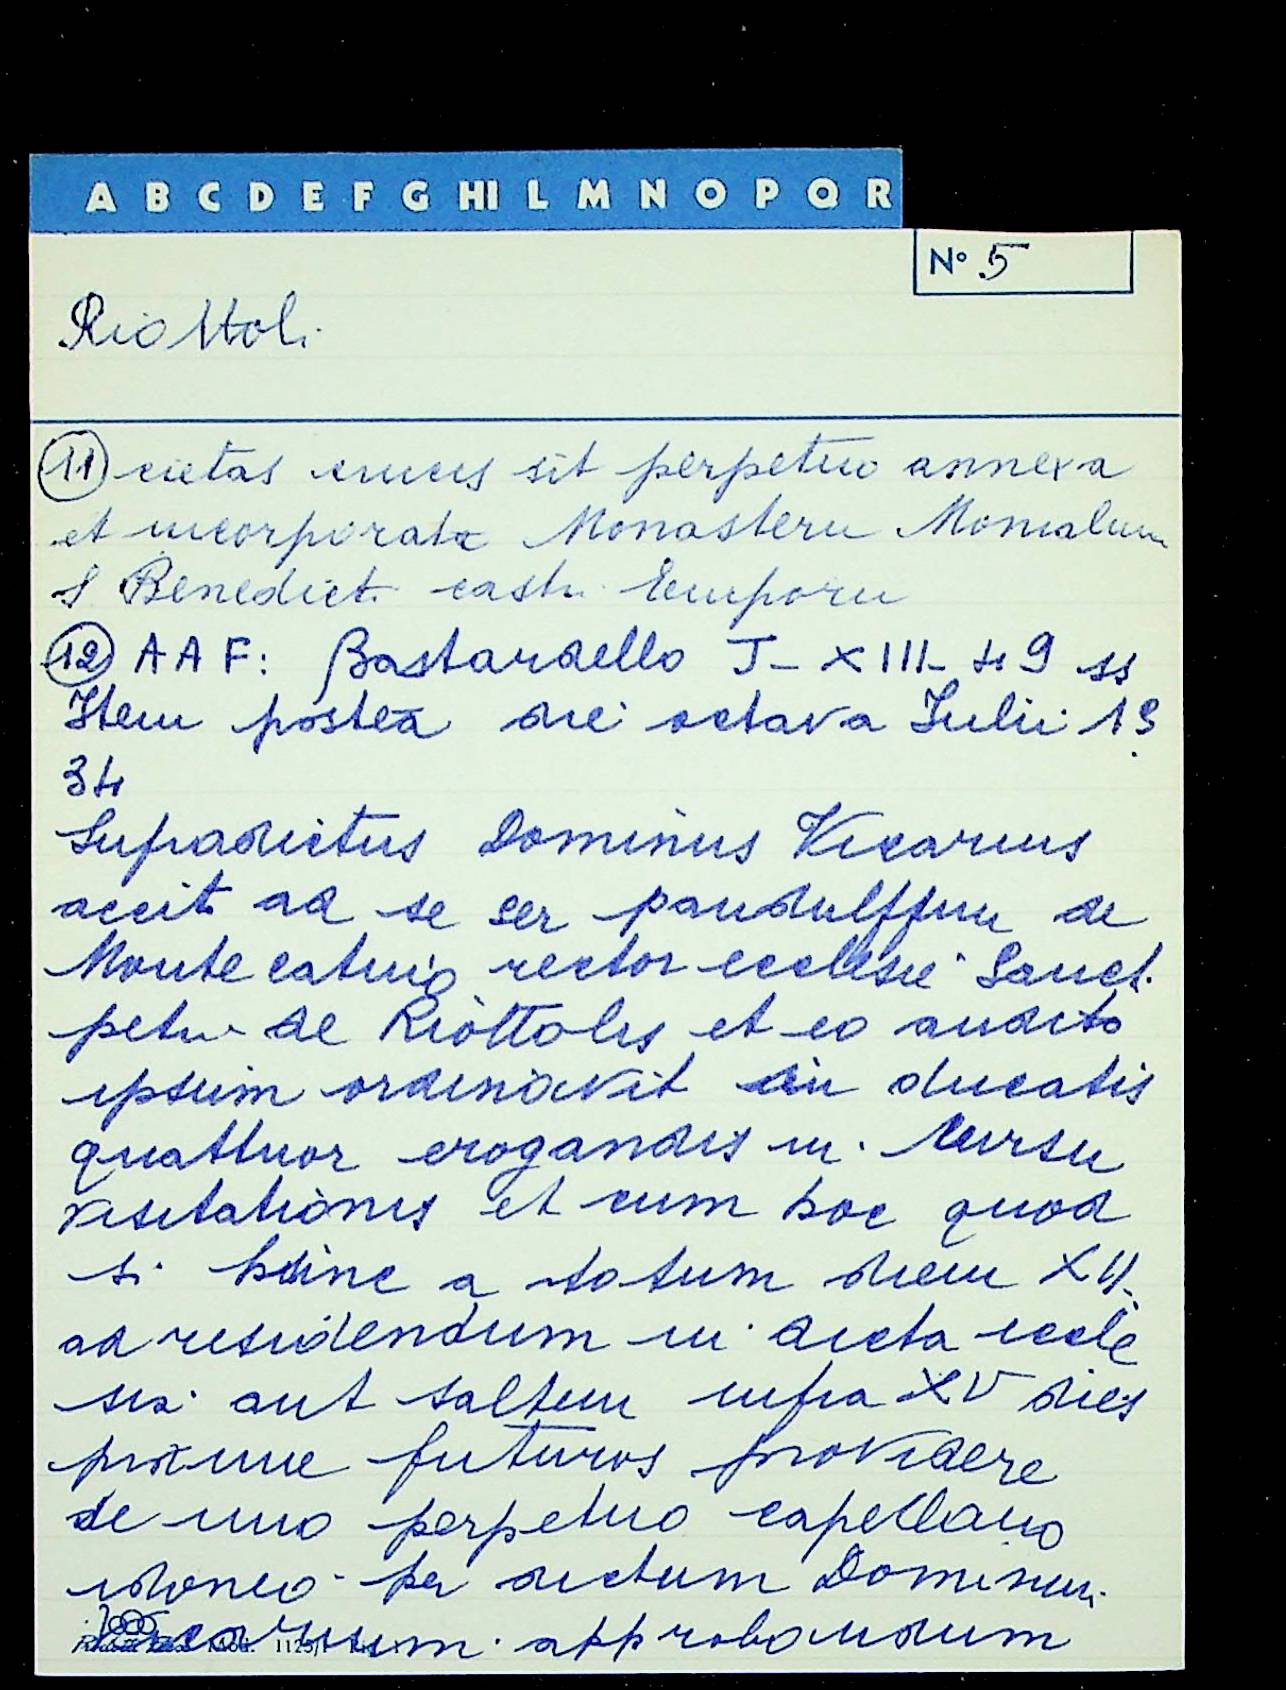 A B C D E F G HI L M N O P Q R
N° 5
Riottoli
(11) cietas crucis sit perpetuo annexa
et incorporata Monasterii Monialium
S Benedicti castri Emporii
(12) A A F: Bastardello J - XIII - 49 ss
Item postea die octava Iulii 13
34
Supradictus Dominus Vicarius
accit ad se ser pandulffum de
Monte catino rector ecclesie Sancti
petri de Riottolis et eo audito
ipsum ordinavit in ducatis
quattuor erogandis in
visitationis et cum hoc quod
si hinc a totum diem XV
ad residendum in dicta eccle
sia aut saltem infra XV dies
proxime futuros providere
de uno perpetuo capellano
idoneo per dictum Dominum
Vicarium approbandum
Mod. 1125/